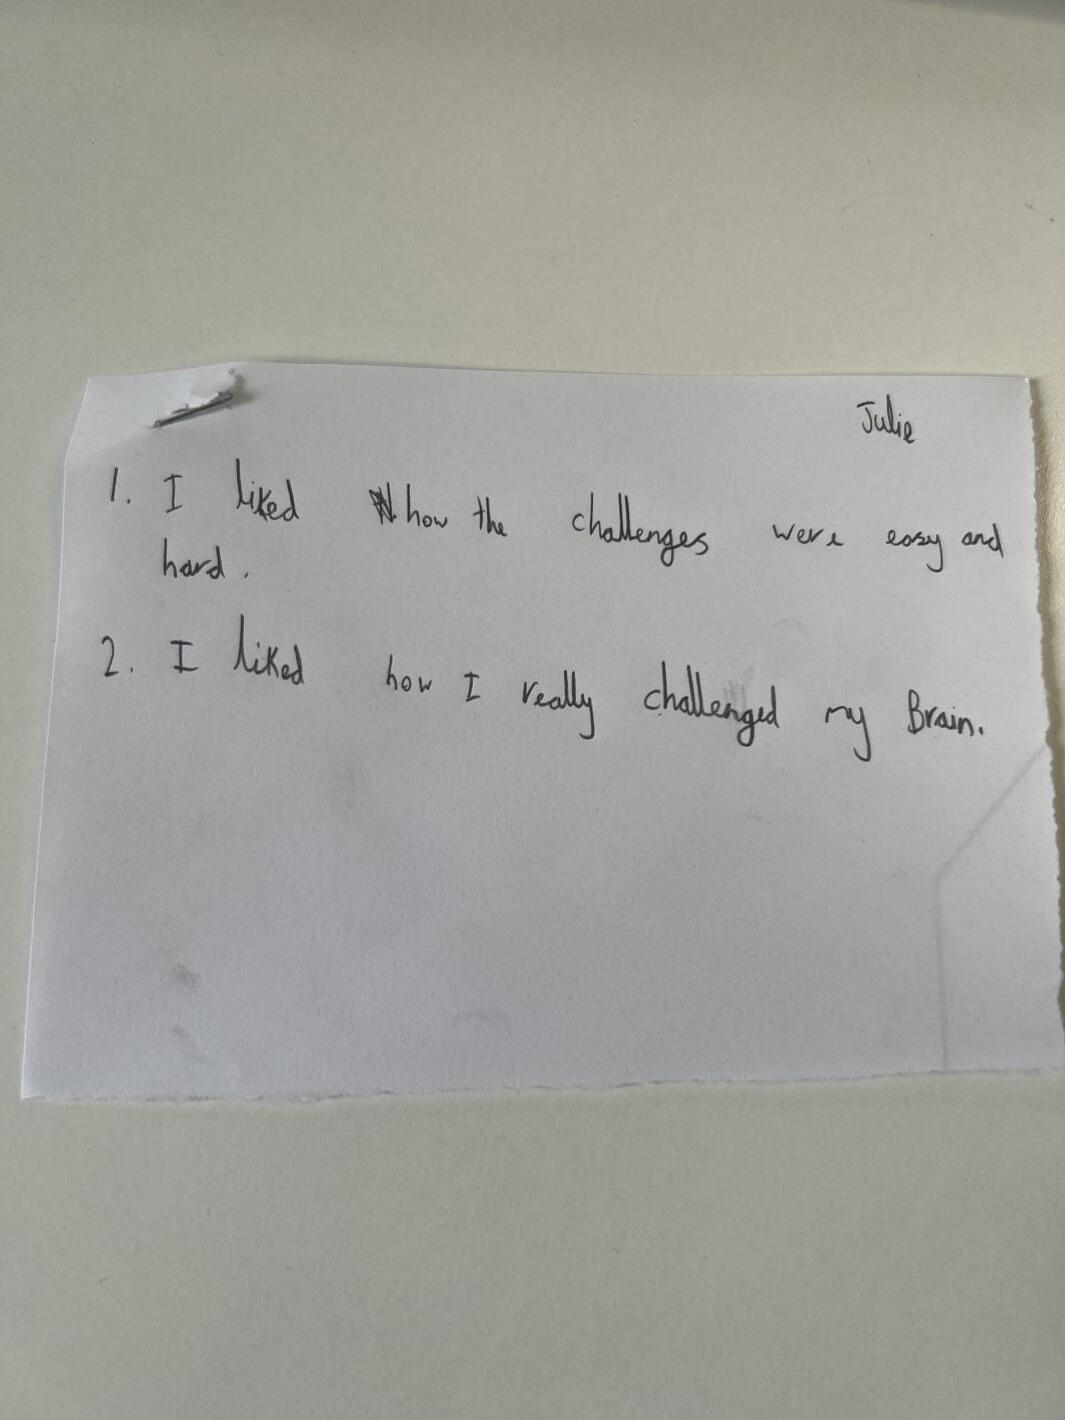 Julie
1. I liked how the challenges were easy and
hard.
2. I liked how I really challenged my Brain.